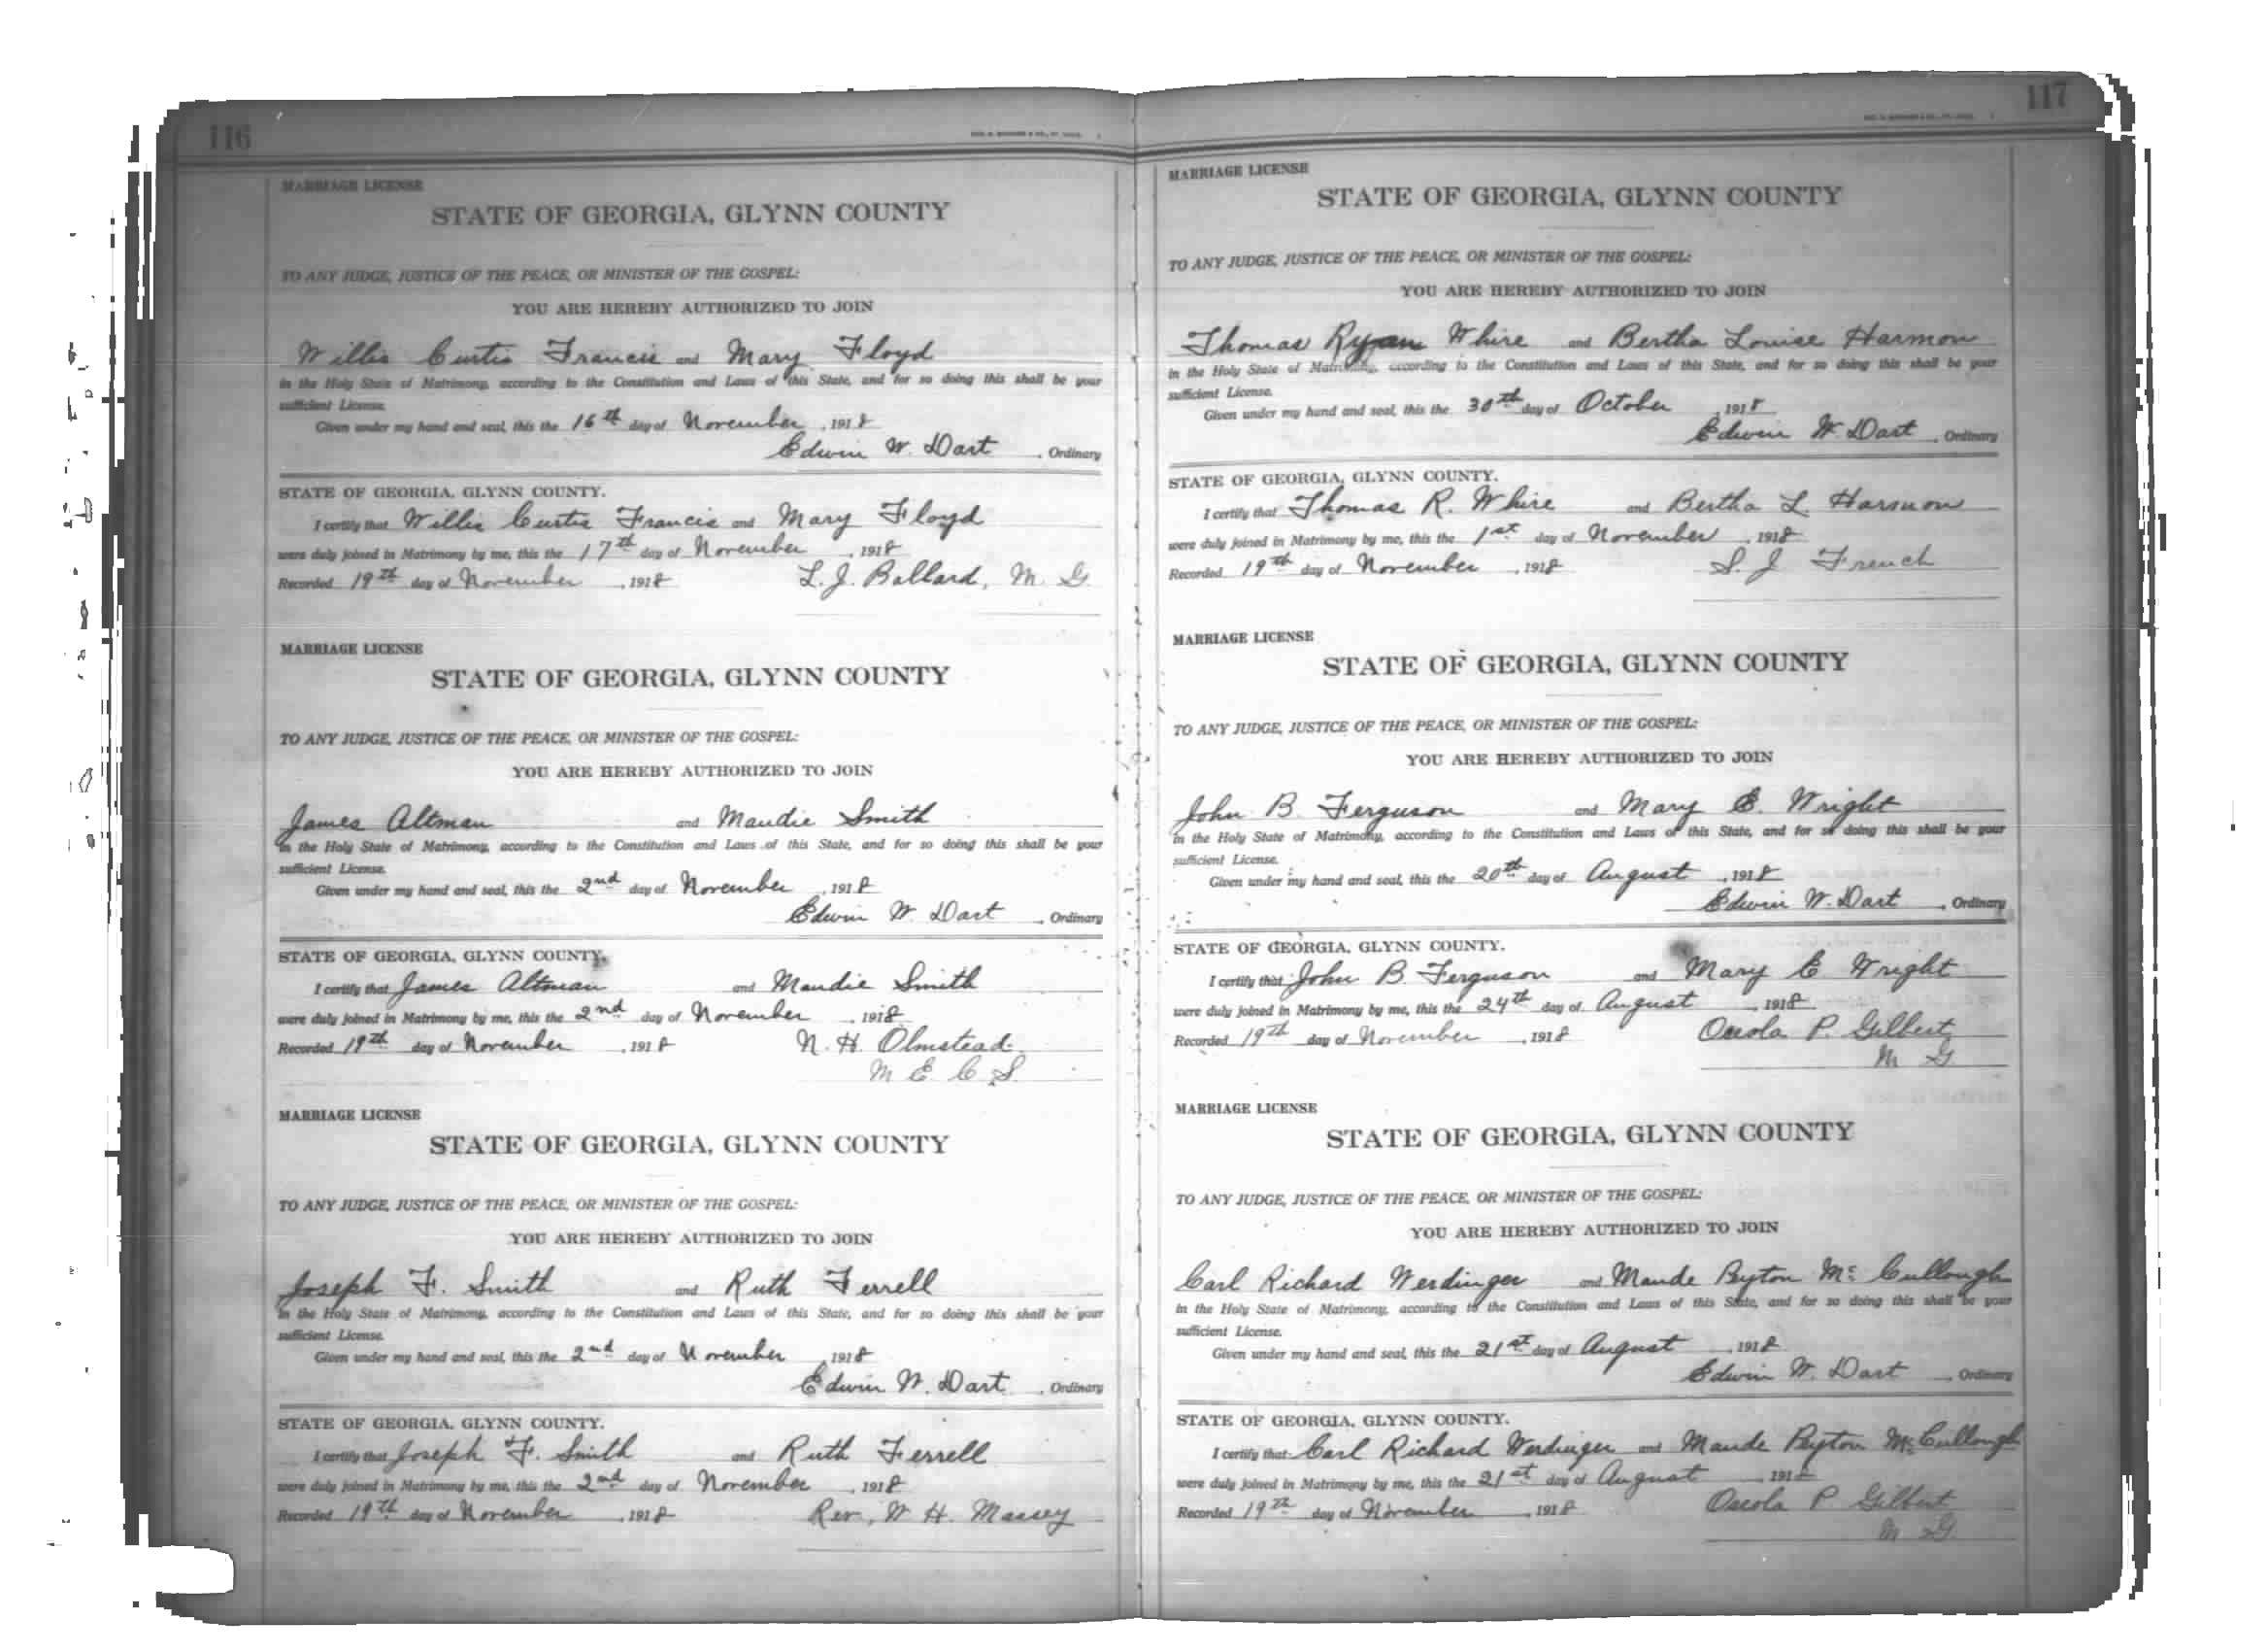 116
MARRIAGE LICENSE
STATE OF GEORGIA, GLYNN COUNTY
TO ANY JUDGE, JUSTICE OF THE PEACE, OR MINISTER OF THE GOSPEL:
YOU ARE HEREBY AUTHORIZED TO JOIN
Willis Curtis Francis and Mary Floyd
in the Holy State of Matrimony, according to the Constitution and Laws of this State, and for so doing this shall be your
sufficient License.
Given under my hand and seal, this the 16th day of November, 1918
Edwin W. Dart, Ordinary
STATE OF GEORGIA, GLYNN COUNTY.
I certify that Willis Curtis Francis and Mary Floyd
were duly joined in Matrimony by me, this the 17th day of November, 1918
Recorded 19th day of November, 1918 L. J. Ballard, M. G.
MARRIAGE LICENSE
STATE OF GEORGIA, GLYNN COUNTY
TO ANY JUDGE, JUSTICE OF THE PEACE, OR MINISTER OF THE GOSPEL:
YOU ARE HEREBY AUTHORIZED TO JOIN
James Altman and Maudie Smith
in the Holy State of Matrimony, according to the Constitution and Laws of this State, and for so doing this shall be your
sufficient License.
Given under my hand and seal, this the 2nd day of November, 1918
Edwin W. Dart, Ordinary
STATE OF GEORGIA, GLYNN COUNTY.
I certify that James Altman and Maudie Smith
were duly joined in Matrimony by me, this the 2nd day of November, 1918
Recorded 19th day of November, 1918 N. H. Olmstead.
M E C S.
MARRIAGE LICENSE
STATE OF GEORGIA, GLYNN COUNTY
TO ANY JUDGE, JUSTICE OF THE PEACE, OR MINISTER OF THE GOSPEL:
YOU ARE HEREBY AUTHORIZED TO JOIN
Joseph F. Smith and Ruth Ferrell
in the Holy State of Matrimony, according to the Constitution and Laws of this State, and for so doing this shall be your
sufficient License.
Given under my hand and seal, this the 2nd day of November, 1918
Edwin W. Dart, Ordinary
STATE OF GEORGIA, GLYNN COUNTY.
I certify that Joseph F. Smith and Ruth Ferrell
were duly joined in Matrimony by me, this the 2nd day of November, 1918
Recorded 19th day of November, 1918 Rev. W. H. Massey
117
MARRIAGE LICENSE
STATE OF GEORGIA, GLYNN COUNTY
TO ANY JUDGE, JUSTICE OF THE PEACE, OR MINISTER OF THE GOSPEL:
YOU ARE HEREBY AUTHORIZED TO JOIN
Thomas Ryan Whire and Bertha Louise Harmon
in the Holy State of Matrimony, according to the Constitution and Laws of this State, and for so doing this shall be your
sufficient License.
Given under my hand and seal, this the 30th day of October, 1918
Edwin W. Dart, Ordinary
STATE OF GEORGIA, GLYNN COUNTY.
I certify that Thomas R. Whire and Bertha L. Harmon
were duly joined in Matrimony by me, this the 1st day of November, 1918
Recorded 19th day of November, 1918 S. J French
MARRIAGE LICENSE
STATE OF GEORGIA, GLYNN COUNTY
TO ANY JUDGE, JUSTICE OF THE PEACE, OR MINISTER OF THE GOSPEL:
YOU ARE HEREBY AUTHORIZED TO JOIN
John B. Ferguson and Mary E. Wright
in the Holy State of Matrimony, according to the Constitution and Laws of this State, and for so doing this shall be your
sufficient License.
Given under my hand and seal, this the 20th day of August, 1918
Edwin W. Dart, Ordinary
STATE OF GEORGIA, GLYNN COUNTY.
I certify that John B. Ferguson and Mary E Wright
were duly joined in Matrimony by me, this the 24th day of August, 1918
Recorded 19th day of November, 1918 Osceola P. Gilbert
M G.
MARRIAGE LICENSE
STATE OF GEORGIA, GLYNN COUNTY
TO ANY JUDGE, JUSTICE OF THE PEACE, OR MINISTER OF THE GOSPEL:
YOU ARE HEREBY AUTHORIZED TO JOIN
Carl Richard Werdinger and Maude Peyton Mc Cullough
in the Holy State of Matrimony, according to the Constitution and Laws of this State, and for so doing this shall be your
sufficient License.
Given under my hand and seal, this the 21st day of August, 1918
Edwin W. Dart, Ordinary
STATE OF GEORGIA, GLYNN COUNTY.
I certify that Carl Richard Werdinger and Maude Peyton McCullough
were duly joined in Matrimony by me, this the 21st day of August, 1918
Recorded 19th day of November, 1918 Oscola P Gilbert
M G.